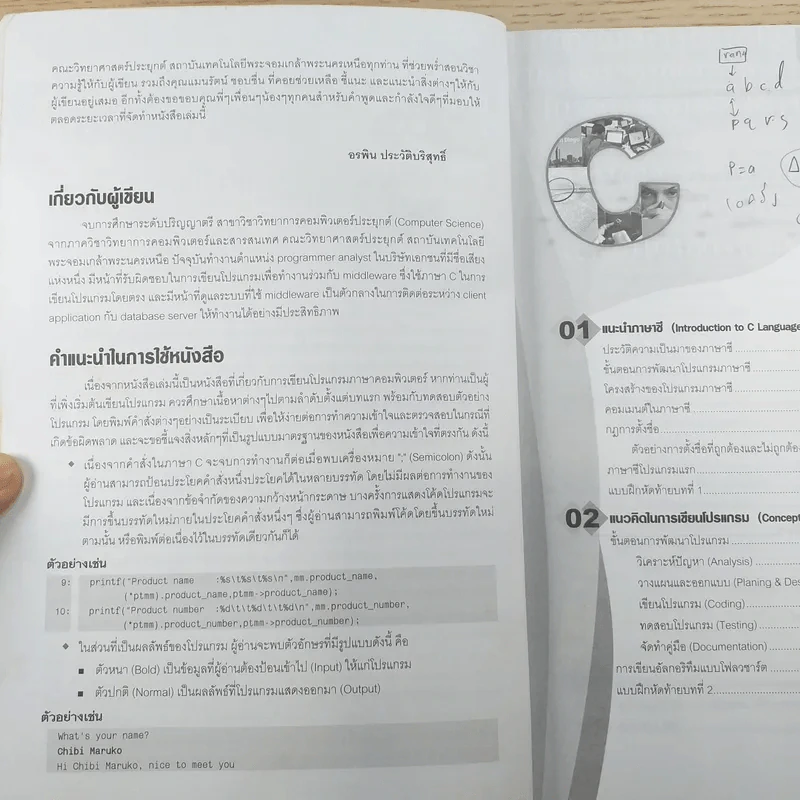 คณะวิทยาศาสตร์ประยุกต์ สถาบันเทคโนโลยีพระจอมเกล้าพระนครเหนือทุกท่าน ที่ช่วยพร่ำสอนวิชา
ความรู้ให้กับผู้เขียน รวมถึงคุณแมนรัตน์ ชอบชื่น ที่คอยช่วยเหลือ ชี้แนะ และแนะนำสิ่งต่างๆให้กับ
ผู้เขียนอยู่เสมอ อีกทั้งต้องขอขอบคุณพี่ๆเพื่อนๆน้องๆทุกคนสำหรับคำพูดและกำลังใจดีๆที่มอบให้
ตลอดระยะเวลาที่จัดทำหนังสือเล่มนี้
อรพิน ประวัติบริสุทธิ์
เกี่ยวกับผู้เขียน
จบการศึกษาระดับปริญญาตรี สาขาวิชาวิทยาการคอมพิวเตอร์ประยุกต์ (Computer Science)
จากภาควิชาวิทยาการคอมพิวเตอร์และสารสนเทศ คณะวิทยาศาสตร์ประยุกต์ สถาบันเทคโนโลยี
พระจอมเกล้าพระนครเหนือ ปัจจุบันทำงานตำแหน่ง programmer analyst ในบริษัทเอกชนที่มีชื่อเสียง
แห่งหนึ่ง มีหน้าที่รับผิดชอบในการเขียนโปรแกรมเพื่อทำงานร่วมกับ middleware ซึ่งใช้ภาษา C ในการ
เขียนโปรแกรมโดยตรง และมีหน้าที่ดูแลระบบที่ใช้ middleware เป็นตัวกลางในการติดต่อระหว่าง client
application กับ database server ให้ทำงานได้อย่างมีประสิทธิภาพ
คำแนะนำในการใช้หนังสือ
เนื่องจากหนังสือเล่มนี้เป็นหนังสือที่เกี่ยวกับการเขียนโปรแกรมภาษาคอมพิวเตอร์ หากท่านเป็นผู้
ที่เพิ่งเริ่มต้นเขียนโปรแกรม ควรศึกษาเนื้อหาต่างๆไปตามลำดับตั้งแต่บทแรก พร้อมกับทดสอบตัวอย่าง
โปรแกรม โดยพิมพ์คำสั่งต่างๆอย่างเป็นระเบียบ เพื่อให้ง่ายต่อการทำความเข้าใจและตรวจสอบในกรณีที่
เกิดข้อผิดพลาด และจะขอชี้แจงสิ่งหลักๆที่เป็นรูปแบบมาตรฐานของหนังสือเพื่อความเข้าใจที่ตรงกัน ดังนี้
◆ เนื่องจากคำสั่งในภาษา C จะจบการทำงานก็ต่อเมื่อพบเครื่องหมาย ";" (Semicolon) ดังนั้น
ผู้อ่านสามารถป้อนประโยคคำสั่งหนึ่งประโยคได้ในหลายบรรทัด โดยไม่มีผลต่อการทำงานของ
โปรแกรม และเนื่องจากข้อจำกัดของความกว้างหน้ากระดาษ บางครั้งการแสดงโค้ดโปรแกรมจะ
มีการขึ้นบรรทัดใหม่ภายในประโยคคำสั่งหนึ่งๆ ซึ่งผู้อ่านสามารถพิมพ์โค้ดโดยขึ้นบรรทัดใหม่
ตามนั้น หรือพิมพ์ต่อเนื่องไว้ในบรรทัดเดียวกันก็ได้
ตัวอย่างเช่น
9: printf("Product name :%s\t%s\t%s\n",mm.product_name,
(*ptmm).product_name,ptmm->product_name);
10: printf("Product number :%d\t\t%d\t\t%d\n",mm.product_number,
(*ptmm).product_number,ptmm->product_number);
◆ ในส่วนที่เป็นผลลัพธ์ของโปรแกรม ผู้อ่านจะพบตัวอักษรที่มีรูปแบบดังนี้ คือ
■ ตัวหนา (Bold) เป็นข้อมูลที่ผู้อ่านต้องป้อนเข้าไป (Input) ให้แก่โปรแกรม
■ ตัวปกติ (Normal) เป็นผลลัพธ์ที่โปรแกรมแสดงออกมา (Output)
ตัวอย่างเช่น
What's your name?
Chibi Maruko
Hi Chibi Maruko, nice to meet you
a b c d
p q r s
P=a
C
01 แนะนำภาษาซี (Introduction to C Language
ประวัติความเป็นมาของภาษาซี
ขั้นตอนการพัฒนาโปรแกรมภาษาซี
โครงสร้างของโปรแกรมภาษาซี
คอมเมนต์ในภาษาซี
กฎการตั้งชื่อ
ตัวอย่างการตั้งชื่อที่ถูกต้องและไม่ถูกต้อง
ภาษาซีโปรแกรมแรก
แบบฝึกหัดท้ายบทที่ 1
02 แนวคิดในการเขียนโปรแกรม (Concept
ขั้นตอนการพัฒนาโปรแกรม
วิเคราะห์ปัญหา (Analysis)
วางแผนและออกแบบ (Planing & Des
เขียนโปรแกรม (Coding)
ทดสอบโปรแกรม (Testing)
จัดทำคู่มือ (Documentation)
การเขียนอัลกอริทึมแบบโฟลวชาร์ต
แบบฝึกหัดท้ายบทที่ 2